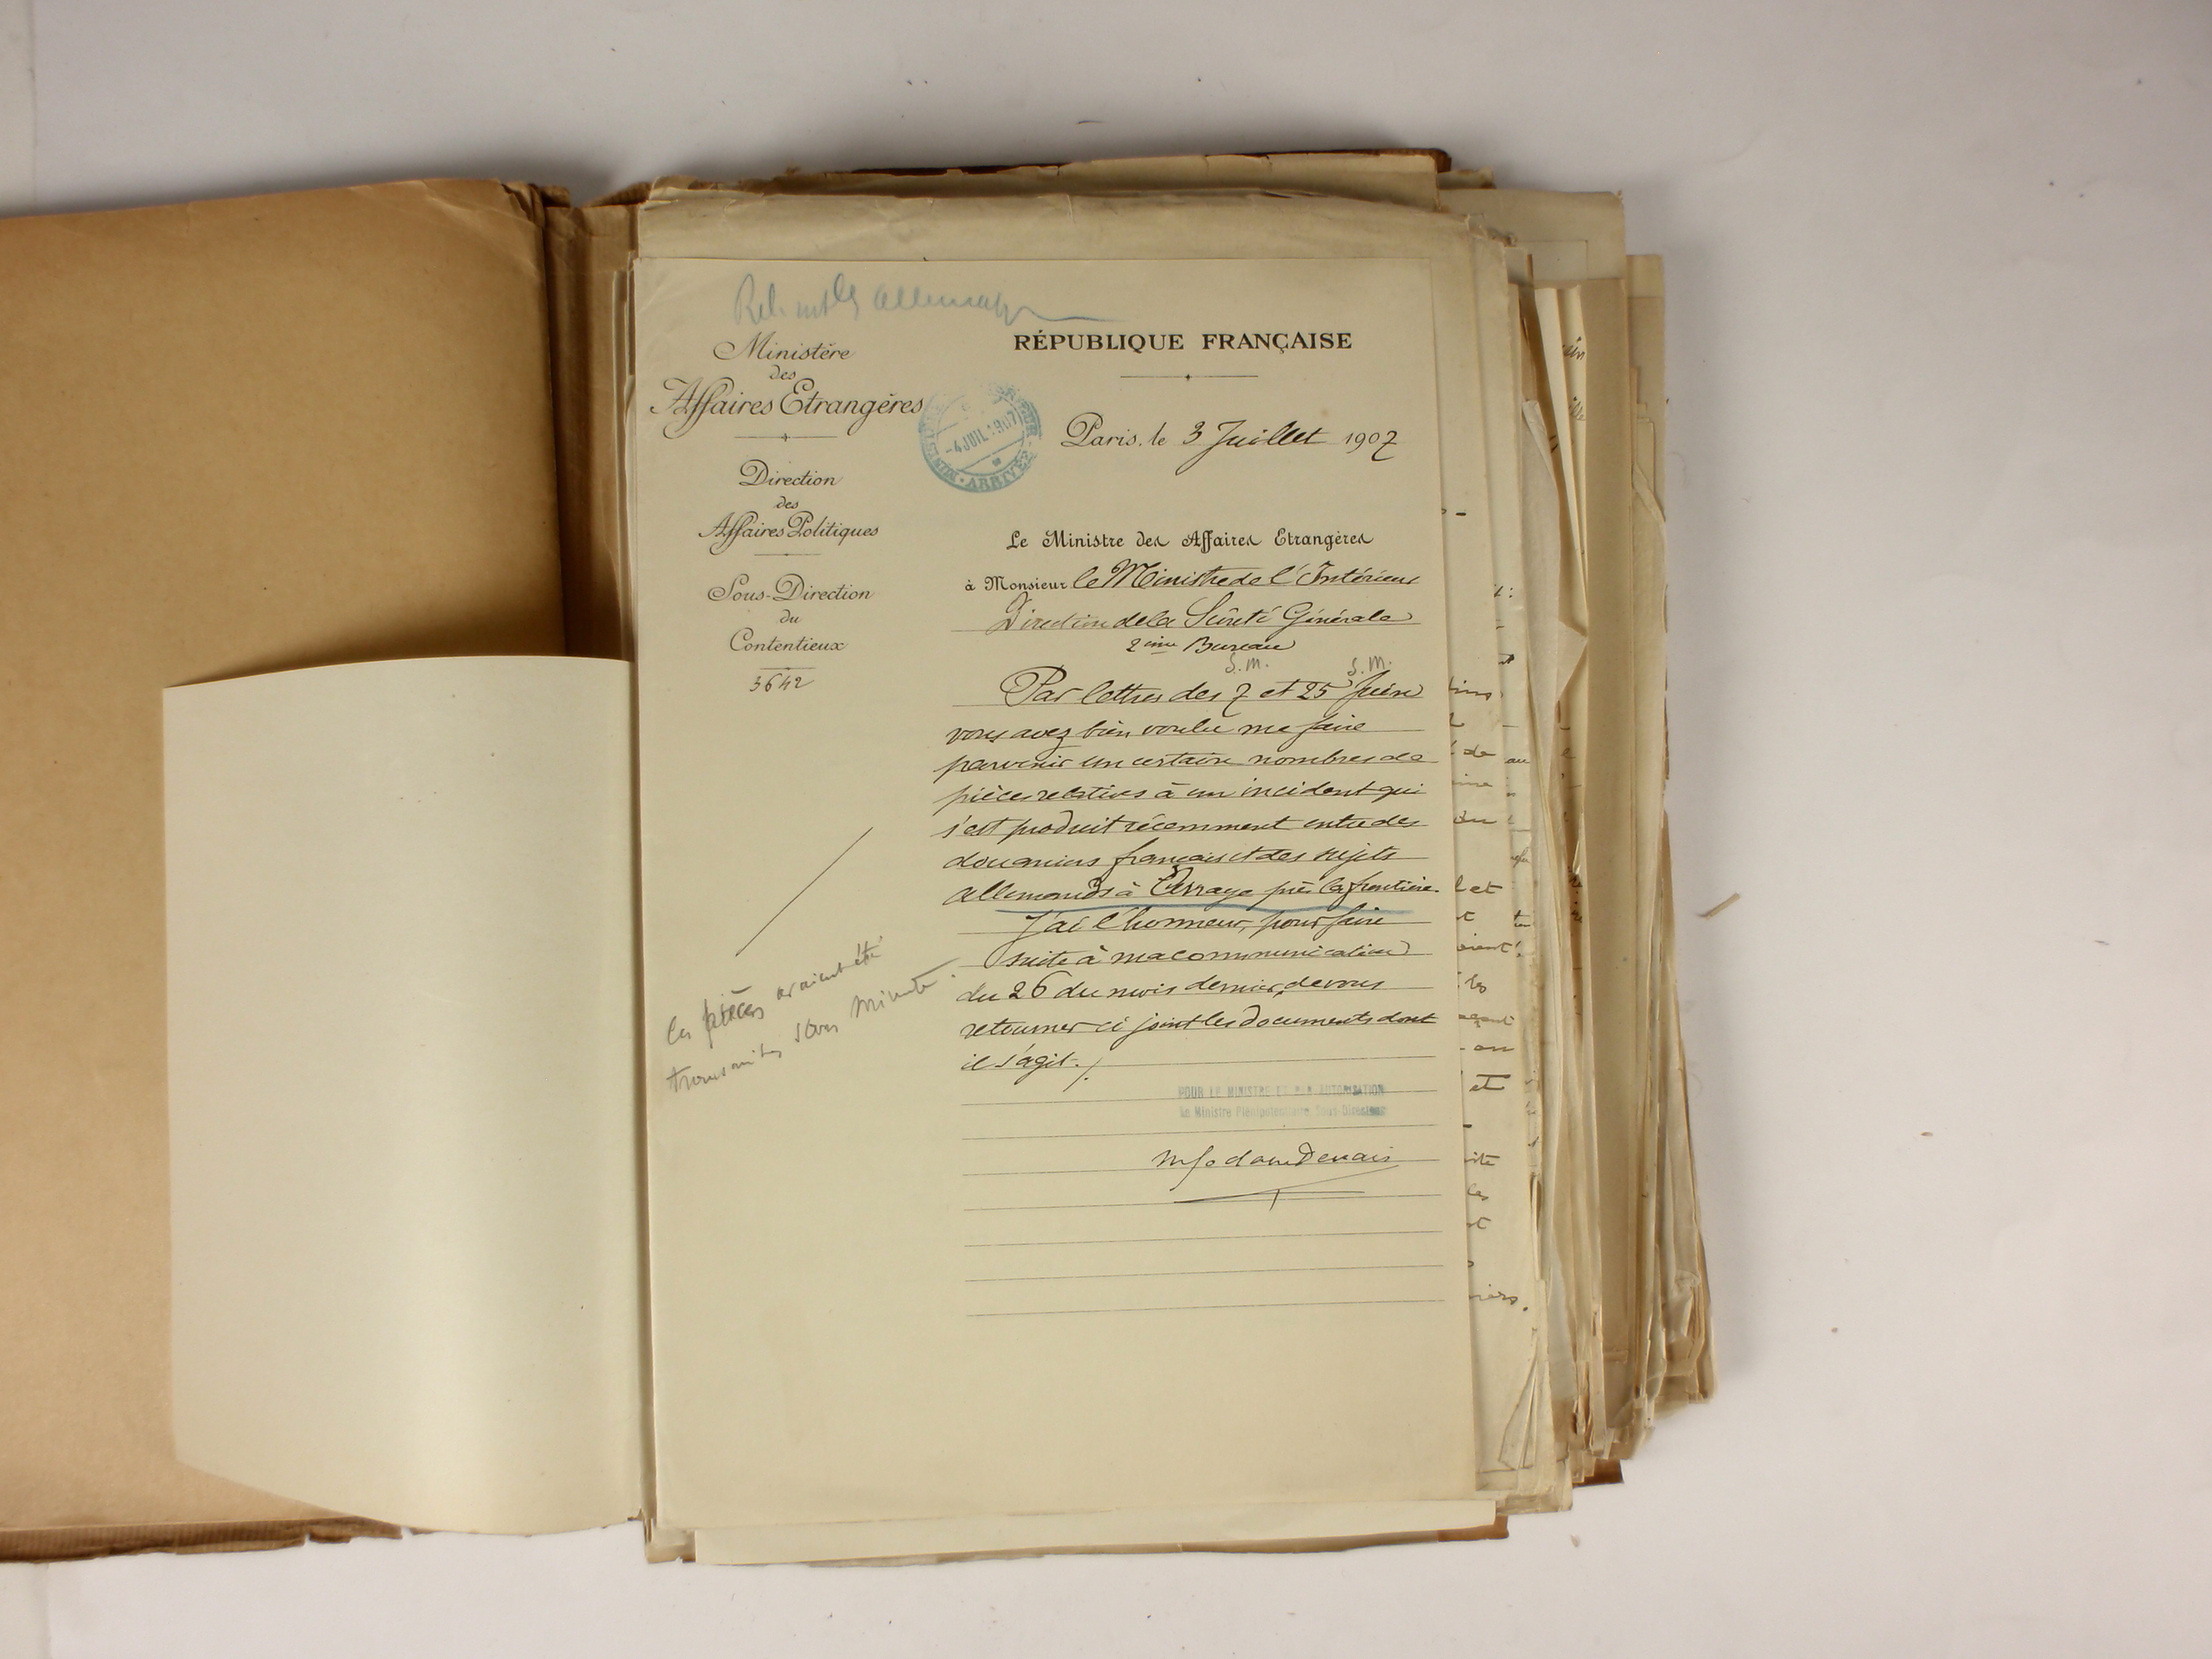 RÉPUBLIQUE FRANÇAISE
Ministère
des
Affaires Etrangères
Direction
des
Affaires Politiques
Sous-Direction
du
Contentieux
3642
-4 JUIL 1907
ARRIVÉE
Paris, le 3 Juillet 1907
Le Ministre des Affaires Etrangères
à Monsieur le Ministre de l'Intérieur
Direction de la Sûreté Générale
2ème Bureau
S.M. S.M.
Par lettres des 7 et 25 Juin
vous avez bien voulu me faire
parvenir un certain nombres de
pièces relatives à un incident qui
s'est produit récemment entre des
douaniers français et des sujets
allemands à près la frontière.
J'ai l'honneur, pour faire
suite à ma communication
du 26 du mois dernier, de vous
retourner ci joint les documents dont
il s'agit./.
Les pièces avaient été
transmises sans minute.
POUR LE MINISTRE ET P.R AUTORISATION
Le Ministre Plénipotentiaire Sous-Directeur